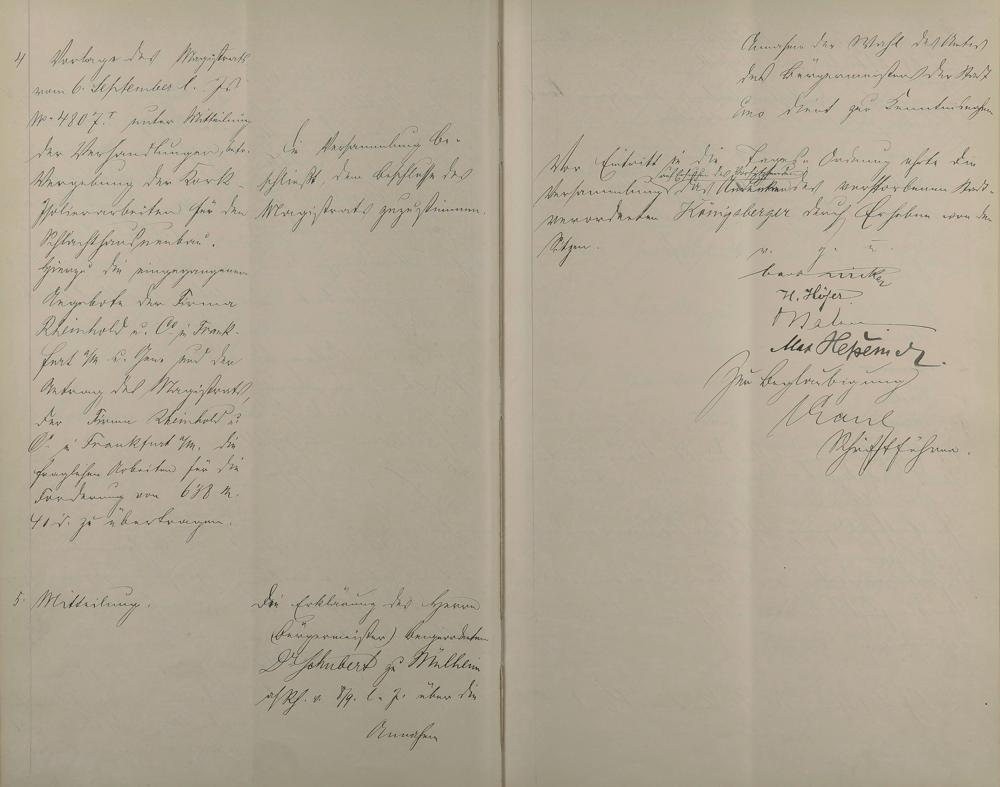 4 Vorlage des Magistrats
vom 6. September l. Js
Nr. 4807. I unter Mitteilung
der Verhandlungen, betr.
Vergebung der Kork-
Isolierarbeiten für den
Schlachthausneubau.
Hierzu die eingegangenen
Angebote der Firma
Rheinhold u. Co. i. Frank-
furt a/M. u. Gen. und der
Antrag des Magistrats,
der Firma Rheinhold u.
Co. i. Frankfurt a/M. die
fraglichen Arbeiten für die
Forderung von 638 M.
41 d. zu übertragen.
Die Versammlung be-
schließt, dem Beschlusse des
Magistrats zuzustimmen.
5. Mitteilung.
Die Erklärung des Herrn
(Bürgermeister) Beigeordneten
Dr. Schubert zu Mülheim
a/Rh. v. 8/9. l. J. über die
Annahme
Annahme der Wahl des Amtes
des Bürgermeisters der Stadt
dient zur Kenntnisnahme
Vor Eintritt in die Tages-Ordnung ehrte die
Versammlung das Andenken des verstorbenen Stadt-
verordneten Königsberger durch Erheben von den
Sitzen.
v. g. u.
H. Höfer
Zur Beglaubigung
Schriftführer.